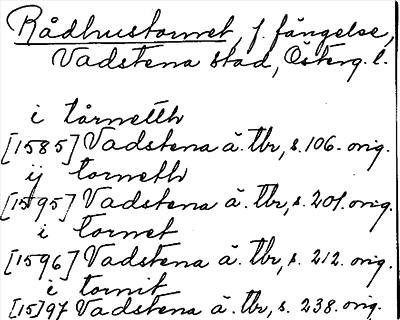 Rådhustornet, f. fängelse,
Vadstena stad, Österg. l.
i tårnetth
[1585] Vadstena ä. tbr, s. 106. orig.
ij tornetth
[1595] Vadstena ä. tbr, s. 201. orig.
i tornet
[1596] Vadstena ä. tbr, s. 212. orig.
i tornit
[15]97 Vadstena ä. tbr, s. 238. orig.